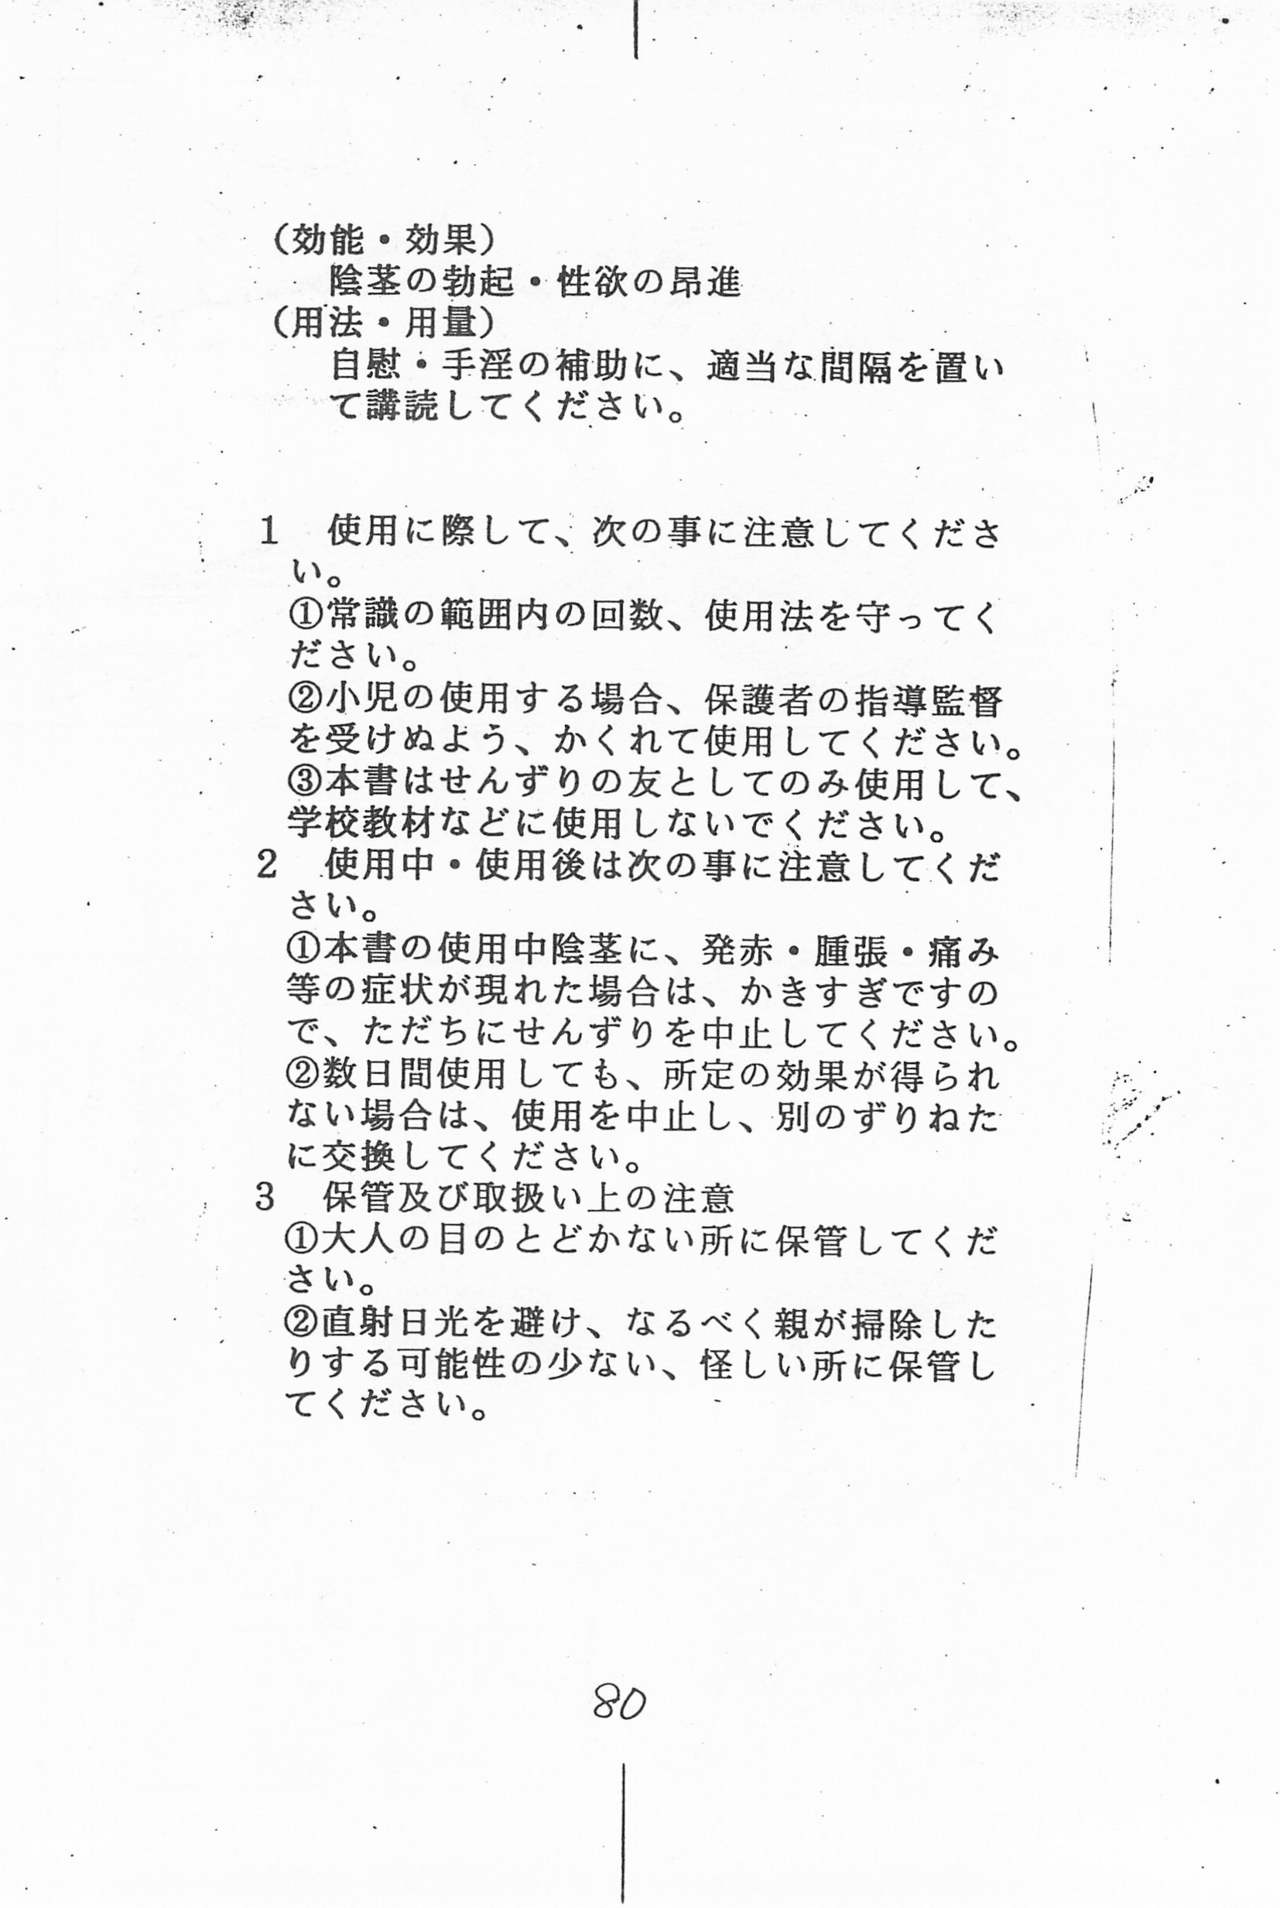 （効能・効果）
陰茎の勃起・性欲の昂進
（用法・用量）
自慰・手淫の補助に、適当な間隔を置い
て講読してください。
1　使用に際して、次の事に注意してくださ
い。
①常識の範囲内の回数、使用法を守ってく
ださい。
②小児の使用する場合、保護者の指導監督
を受けぬよう、かくれて使用してください。
③本書はせんずりの友としてのみ使用して、
学校教材などに使用しないでください。
2　使用中・使用後は次の事に注意してくだ
さい。
①本書の使用中陰茎に、発赤・腫張・痛み
等の症状が現れた場合は、かきすぎですの
で、ただちにせんずりを中止してください。
②数日間使用しても、所定の効果が得られ
ない場合は、使用を中止し、別のずりねた
に交換してください。
3　保管及び取扱い上の注意
①大人の目のとどかない所に保管してくだ
さい。
②直射日光を避け、なるべく親が掃除した
りする可能性の少ない、怪しい所に保管し
てください。
80